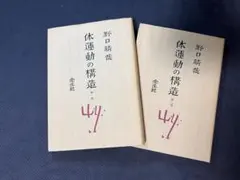 野口晴哉
体運動の構造
全生社
野口晴哉
体運動の構造
全生社